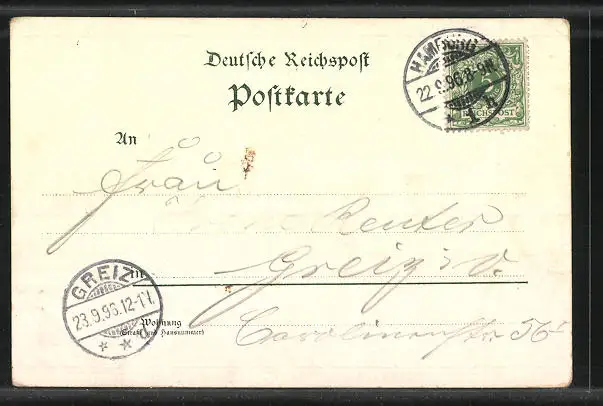 Deutsche Reichspost
Postkarte
HAMBURG
22.9.96.8-9N.
* 1 h
REICHSPOST
An
Frau
Reuter
in Greiz i. V.
GREIZ
23.9.96.12-1V.
* * c
Wohnung
(Straße und Hausnummer)
Carolinenstr. 56 I